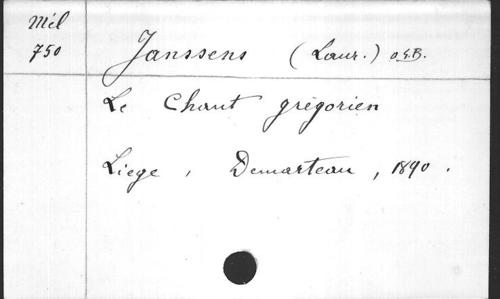 Mél
750
Janssens (Laur.) O.S.B.
Le Chant grégorien
Liege, Demarteau, 1890.